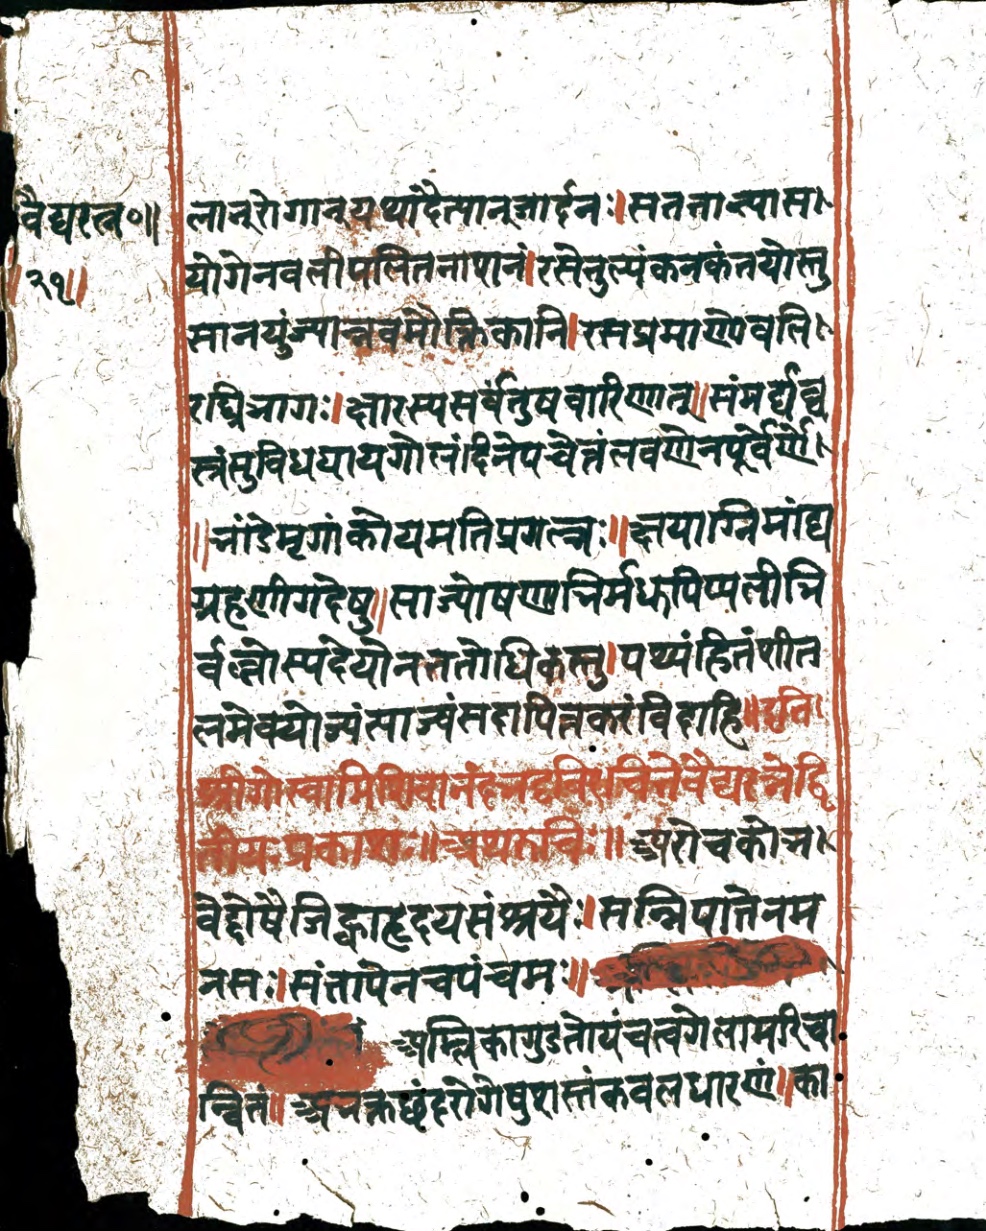 वैद्यरत्न॰॥
॥२१॥
लान्‌रोगान्‌यथादैत्यान्‌जनार्दनः।सतताभ्यास।
योगेनवलीपलितनाशनं।रसेनतुल्यंकनकंतयोस्तु
सानयुंज्यान्नवमौक्तिकानि।रसप्रमाणोवलि।
रंघ्रिभागः।क्षारस्यसर्वतुषवारिणातु॥संमर्द्य
सुविधयायगोलं।दिनेपचेत्तंलवणेनपूर्णे।
॥भांडेमृगांकोयमतिप्रगल्भः॥क्षयाग्निमांद्य
ग्रहणीगदेषु॥साज्योषणाभिर्मधुपिप्पलीभि
र्वल्लोस्यदेयोनततोधिकस्तु।पथ्यंहितंशीत
लमेवयोज्यंत्याज्यंसदापित्तकरंविदाहि॥इति।
श्रीगोस्वामिशिवानंदभट्टविरचितेवैद्यरत्नेद्वि
तीयःप्रकाशः॥अथरुचिः॥अरोचकोभ।
वेद्दोषैर्जिह्वाहृदयसंश्रयैः।सन्निपातेनम
नसः।संतापेनचपंचमः॥
अम्लिकागुडतोयंचत्वगेलामरिचा
न्वितं।अभक्तछंदरोगेषुशस्तंकवलधारणं॥का